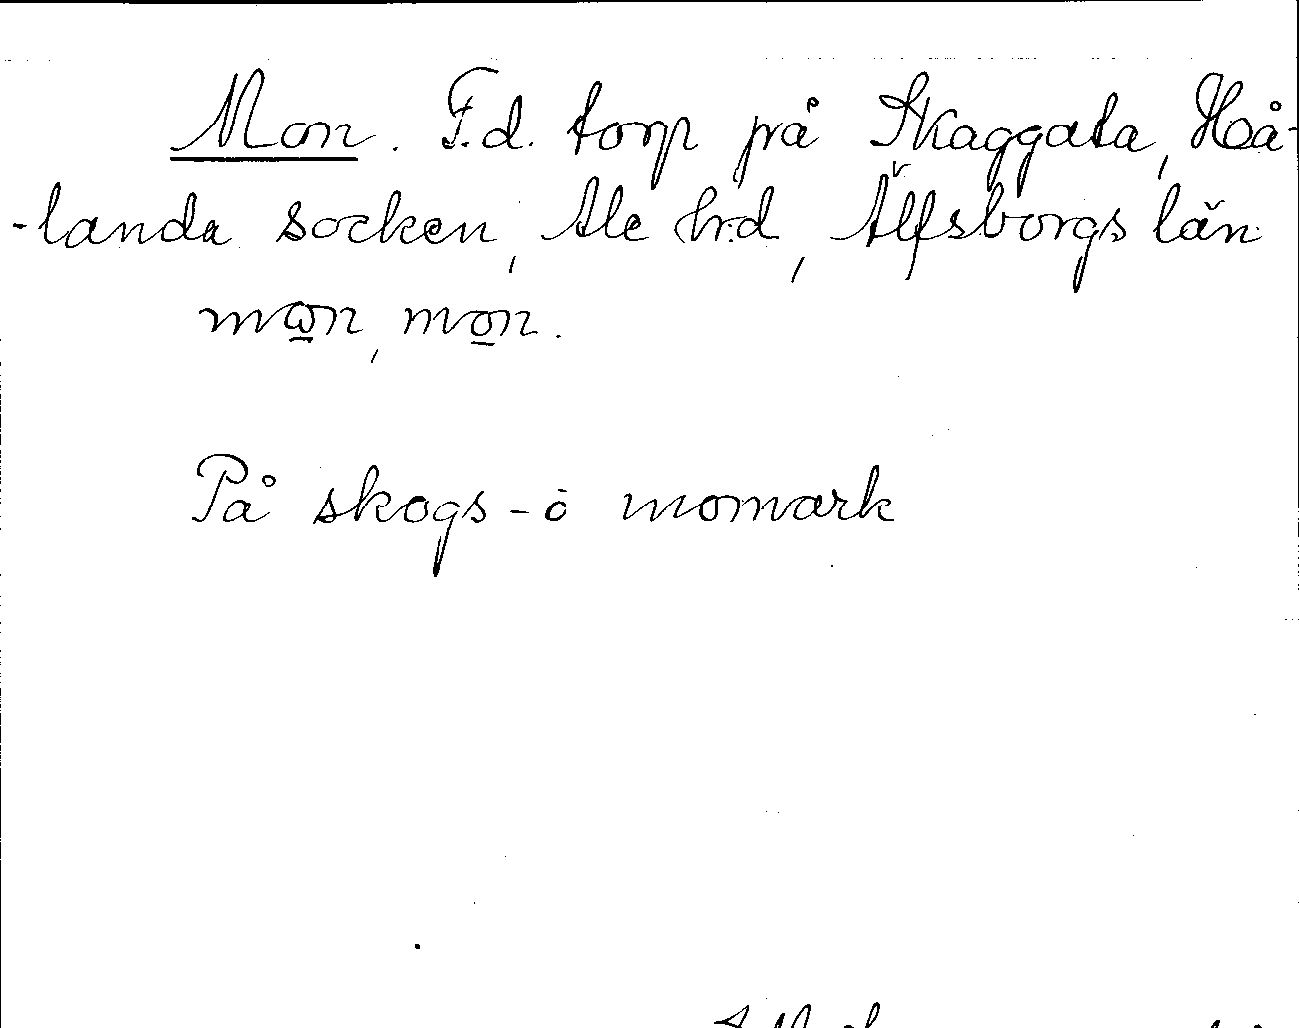 Mon. F.d. torp på Skaggata, Hå-
-landa socken, Ale hrd, Älfsborgs län
mωn, mon.
På skogs- o momark